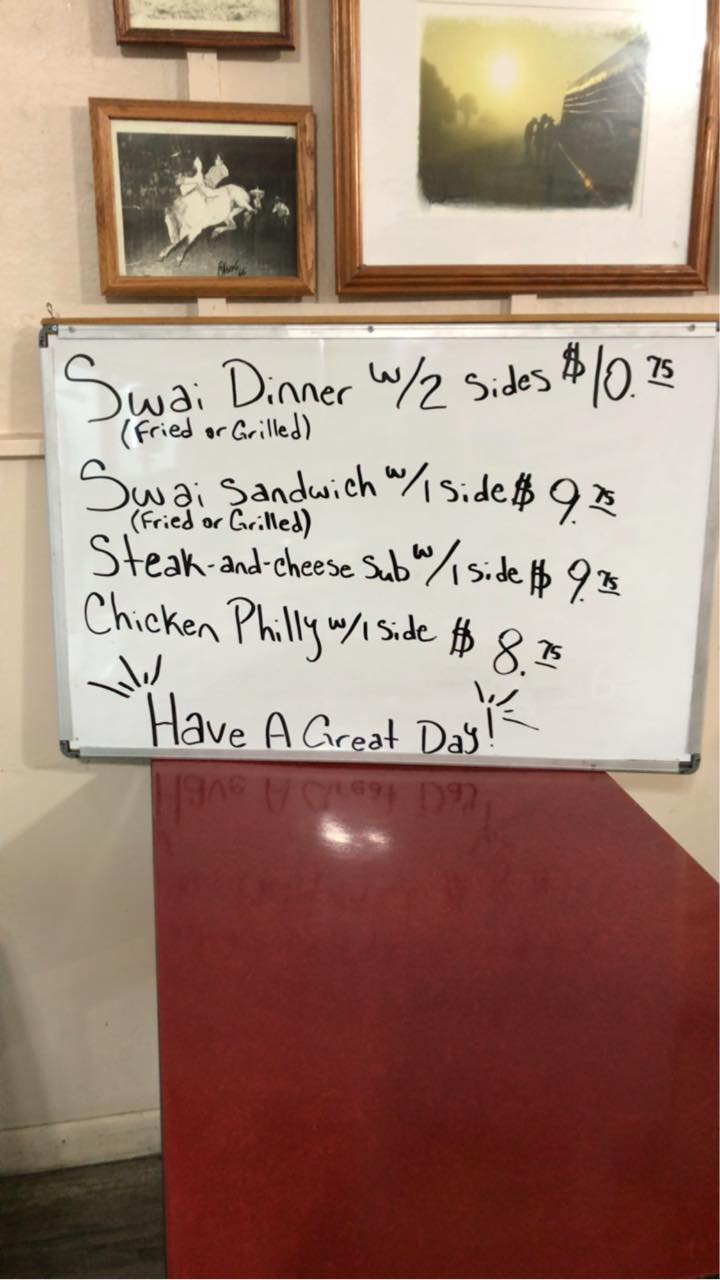 Swai Dinner w/2 sides $10.75
(Fried or Grilled)
Swai Sandwich w/1 side $ 9.75
(Fried or Grilled)
Steak-and-cheese Sub w/1 side $ 9.75
Chicken Philly w/1 side $ 8.75
Have A Great Day!